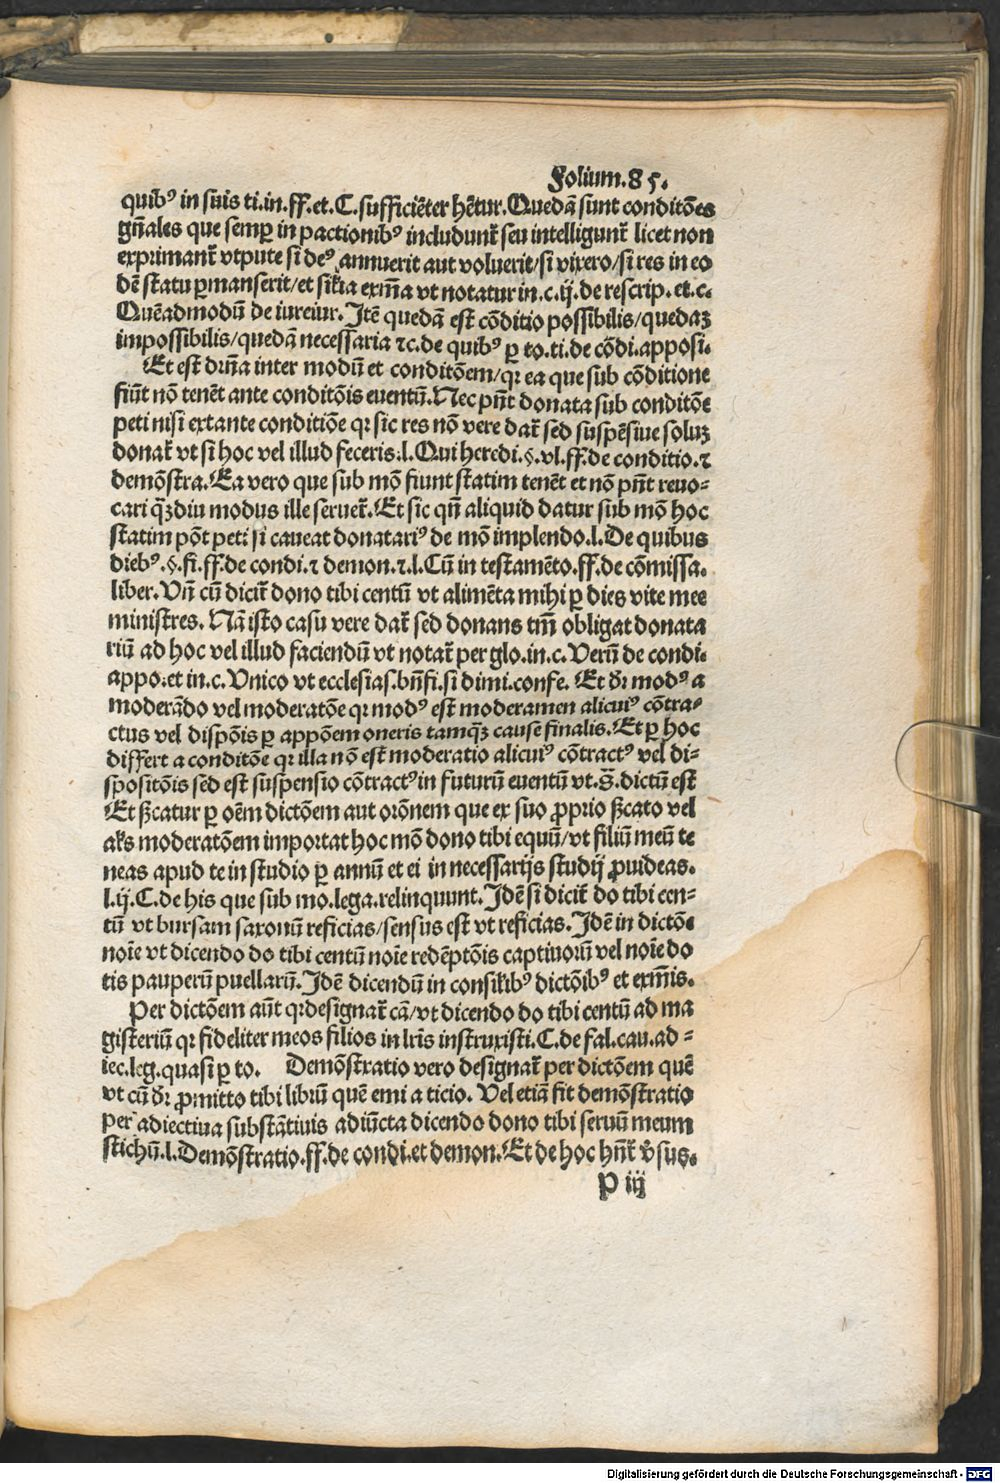 Folium.85.
quibꝰ in suis ti.in.ff.et.C.sufficiēter hētur.Quedā sunt conditōes
gn̄ales que semꝑ in pactionibꝰ includunt᷑ seu intelligunt᷑ licet non
exprimant᷑ vtpute si deꝰ annuerit aut voluerit/si vixero/si res in eo
dē statu ꝑmanserit/et sil'ia exm̄a vt notatur in.c.ij.de rescrip.et.c.
Quēadmodū de iureiur.Itē quedā est cōditio possibilis/quedaꝫ
impossibilis/quedā necessaria ⁊c.de quibꝰ ꝑ to.ti.de cōdi.apposi.
Et est drn̄a inter modū et conditōem/qꝛ ea que sub cōditione
fiūt nō tenēt ante conditōis euentū.Nec pn̄t donata sub conditōe
peti nisi extante conditiōe qꝛ sic res nō vere dat᷑ sed suspēsiue soluꝫ
donat᷑ vt si hoc vel illud feceris.l.Qui heredi.§.vl.ff.de conditio.⁊
demōstra.Ea vero que sub mō fiunt statim tenēt et nō pn̄t reuo-
cari qͣꝫdiu modus ille seruet᷑.Et sic qn̄ aliquid datur sub mō hoc
statim pōt peti si caueat donatariꝰ de mō implendo.l.De quibus
diebꝰ.§.fi.ff.de condi.⁊ demon.⁊.l.Cū in testamēto.ff.de cōmissa.
liber.Vn̄ cū dicit᷑ dono tibi centū vt alimēta mihi ꝑ dies vite mee
ministres.Nā isto casu vere dat᷑ sed donans tm̄ obligat donata
riū ad hoc vel illud faciendū vt notat᷑ per glo.in.c.Verū de condi.
appo.et in.c.Vnico vt ecclesias.bn̄fi.si dimi.confe. Et dr᷑ modꝰ a
moderādo vel moderatōe qꝛ modꝰ est moderamen alicuiꝰ cōtra-
ctus vel dispōis ꝑ appōem oneris tamqͣꝫ cause finalis.Et ꝑ hoc
differt a conditōe qꝛ illa nō est moderatio alicuiꝰ cōtractꝰ vel di-
spositōis sed est suspensio cōtractꝰ in futurū euentū vt.s̄.dictū est
Et sͥcatur ꝑ oēm dictōem aut orōnem que ex suo ꝓprio sͥcato vel
al's moderatōem importat hoc mō dono tibi equū/vt filiū meū te
neas apud te in studio ꝑ annū et ei in necessarijs studij ꝓuideas.
l.ij.C.de his que sub mo.lega.relinquunt.Idē si dicit᷑ do tibi cen-
tū vt bursam saxonū reficias/sensus est vt reficias.Idē in dictōe
noīe vt dicendo do tibi centū noīe redēptōis captiuorū vel noīe do
tis pauperū puellarū.Idē dicendū in consil'ibꝰ dictōibꝰ et exm̄is.
Per dictōem aūt qꝛ designat᷑ cā/vt dicendo do tibi centū ad ma
gisteriū qꝛ fideliter meos filios in lr̄is instruxisti.C.de fal.cau.ad-
iec.leg.quasi ꝑ to. Demōstratio vero designat᷑ per dictōem quē
vt cū dr᷑ ꝓmitto tibi librū quē emi a ticio. Vel etiā fit demōstratio
per adiectiua substātiuis adiūcta dicendo dono tibi seruū meum
stichū.l.Demōstratio.ff.de condi.et demon.Et de hoc hn̄t᷑ v̓sus.
P iij
Digitalisierung gefördert durch die Deutsche Forschungsgemeinschaft - DFG